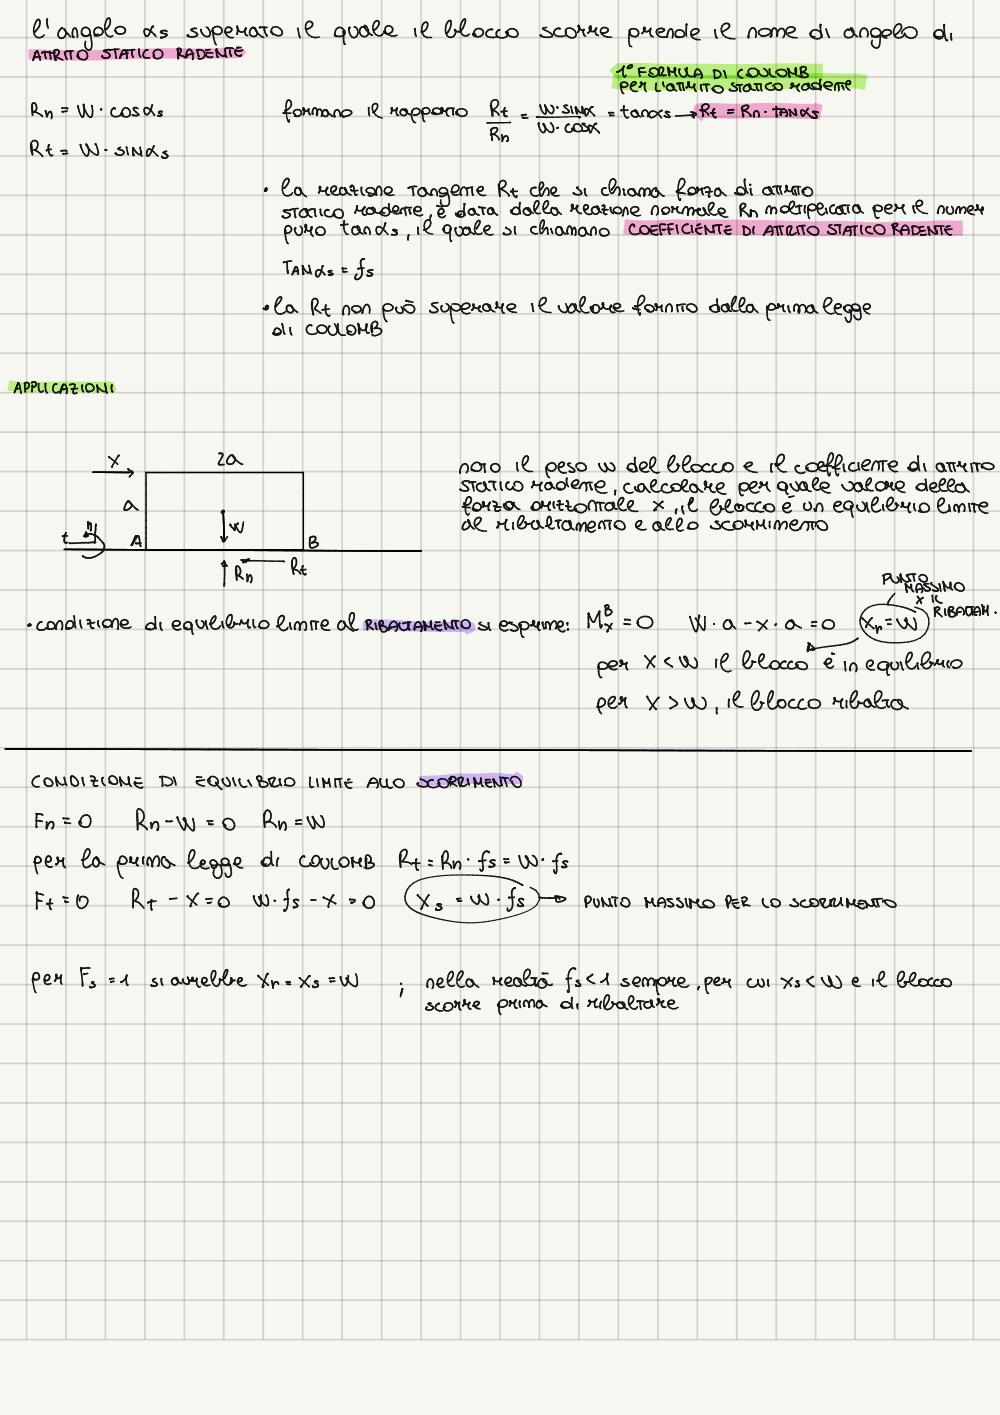 l'angolo αs superato il quale il blocco scorre prende il nome di angolo di
ATTRITO STATICO RADENTE
1° FORMULA DI COULOMB
per l'attrito statico radente
Rn = W · cosαs
formano il rapporto Rt/Rn = W·sinα/W·cosα = tanαs → Rt = Rn · TANαs
Rt = W · SINαs
• la reazione tangente Rt che si chiama forza di attrito
statico radente, è data dalla reazione normale Rn moltiplicata per il numer
puro tanαs, il quale si chiamano COEFFICIENTE DI ATTRITO STATICO RADENTE
TANαs = fs
• la Rt non può superare il valore fornito dalla prima legge
di COULOMB
APPLICAZIONI
X
2a
a
W
t
n
A
B
Rn
Rt
noto il peso w del blocco e il coefficiente di attrito
statico radente, calcolare per quale valore della
forza orizzontale x, il blocco è un equilibrio limite
al ribaltamento e allo scorrimento
PUNTO
MASSIMO
x IL
RIBALTAM.
• condizione di equilibrio limite al RIBALTAMENTO si esprime: M_x^B = 0 W·a - x·a = 0 Xr = W
per X < W il blocco è in equilibrio
per X > W, il blocco ribalta
CONDIZIONE DI EQUILIBRIO LIMITE ALLO SCORRIMENTO
Fn = 0 Rn - W = 0 Rn = W
per la prima legge di COULOMB Rt = Rn · fs = W · fs
Ft = 0 RT - X = 0 W·fs - X = 0 Xs = W · fs → PUNTO MASSIMO PER LO SCORRIMENTO
per Fs = 1 si avrebbe Xr = Xs = W ; nella realtà fs < 1 sempre, per cui Xs < W e il blocco
scorre prima di ribaltare